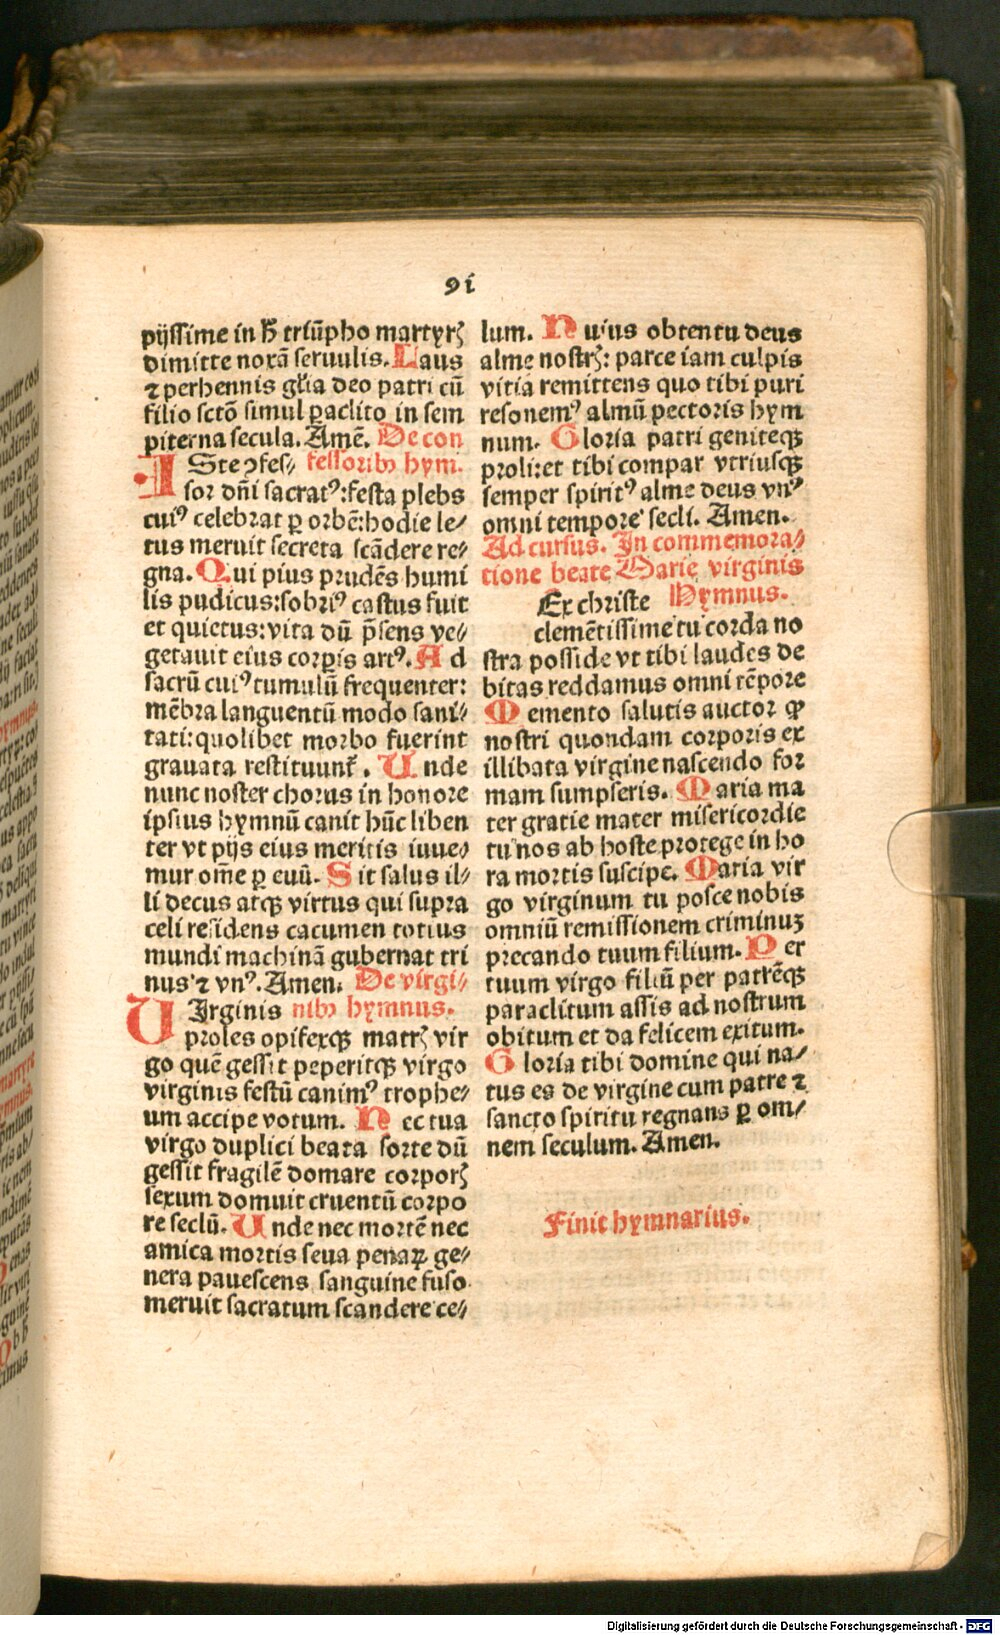 91
pijssime in h̄ triūpho martyrꝭ
dimitte noxā seruulis. Laus
⁊ perhennis gl̄ia deo patri cū
filio sctō simul ꝑaclito in sem
piterna secula. Amē. De con
ISte ꝯfes⸗ fessoribꝰ hym.
sor dn̄i sacratꝰ:festa plebs
cuiꝰ celebrat ꝑ orbē:hodie le⸗
tus meruit secreta scādere re⸗
gna. Qui pius prudēs humi
lis pudicus:sobriꝰ castus fuit
et quietus:vita dū p̄sens ve⸗
getauit eius corꝑis artꝰ. Ad
sacrū cuiꝰ tumulū frequenter:
mēbra languentū modo sani⸗
tati:quolibet morbo fuerint
grauata restituunt᷑. Unde
nunc noster chorus in honore
ipsius hymnū canit hūc liben
ter vt pijs eius meritis iuue⸗
mur om̄e ꝑ euū. Sit salus il⸗
li decus atqꝫ virtus qui supra
celi residens cacumen totius
mundi machinā gubernat tri
nus ⁊ vnꝰ. Amen. De virgi⸗
UIrginis nibꝰ hymnus.
proles opifexqꝫ matrꝭ vir
go quē gessit peperitqꝫ virgo
virginis festū canimꝰ trophe⸗
um accipe votum. Nec tua
virgo duplici beata sorte dū
gessit fragilē domare corporꝭ
sexum domuit cruentū corpo
re seclū. Unde nec mortē nec
amica mortis seua penaꝝ ge⸗
nera pauescens sanguine fuso
meruit sacratum scandere ce⸗
lum. Nuius obtentu deus
alme nostrꝭ: parce iam culpis
vitia remittens quo tibi puri
resonemꝰ almū pectoris hym
num. Gloria patri geniteqꝫ
proli:et tibi compar vtriusqꝫ
semper spiritꝰ alme deus vnꝰ
omni tempore secli. Amen.
Ad cursus. In commemora⸗
tione beate Marie virginis
Ex christe Hymnus.
clemētissime tu corda no
stra posside vt tibi laudes de
bitas reddamus omni tēpore
Memento salutis auctor ꝙ
nostri quondam corporis ex
illibata virgine nascendo for
mam sumpseris. Maria ma
ter gratie mater misericordie
tu nos ab hoste protege in ho
ra mortis suscipe. Maria vir
go virginum tu posce nobis
omniū remissionem criminuꝫ
precando tuum filium. Per
tuum virgo filiū per patrēqꝫ
paraclitum assis ad nostrum
obitum et da felicem exitum.
Gloria tibi domine qui na⸗
tus es de virgine cum patre ⁊
sancto spiritu regnans ꝑ om⸗
nem seculum. Amen.
Finit hymnarius.
Digitalisierung gefördert durch die Deutsche Forschungsgemeinschaft - DFG